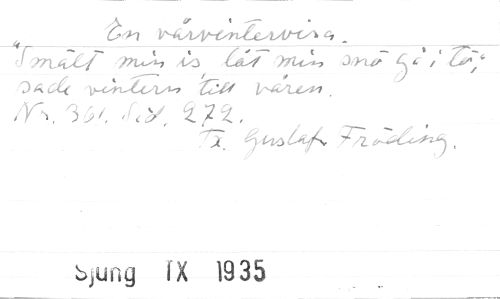 En vårvintervisa.
"Smält min is låt min snö gå i tö,"
sade vintern till våren.
Nr. 361. Sid. 272.
Tx. Gustaf Fröding.
Sjung IX 1935